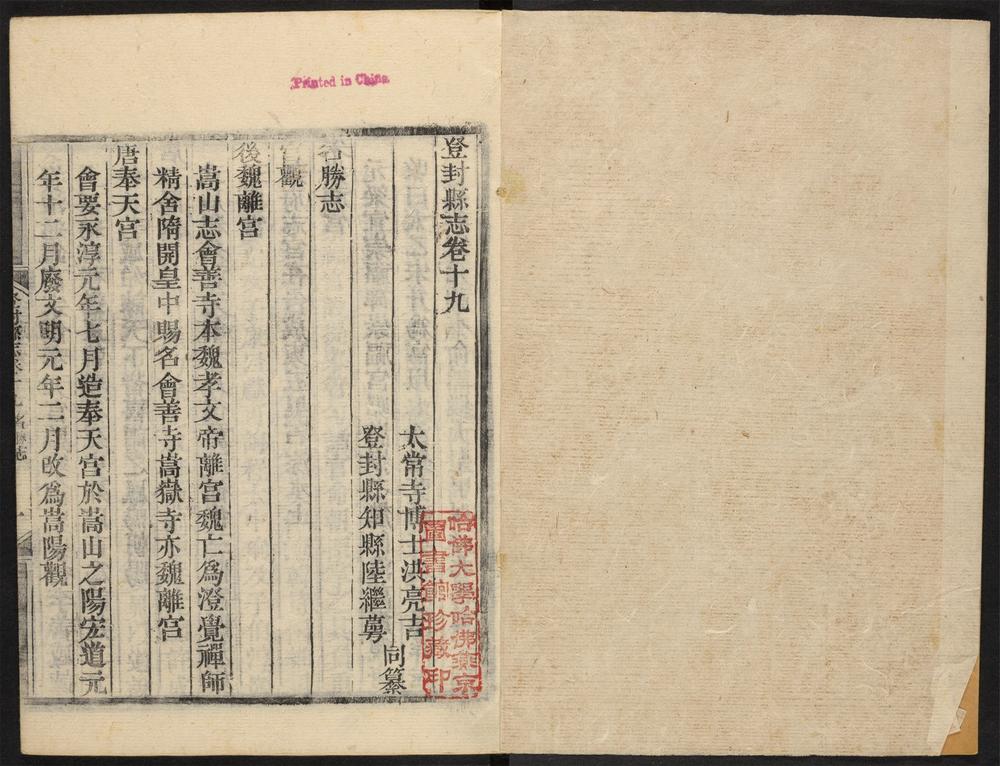 Printed in China
登封縣志卷十九
太常寺博士洪亮吉
登封縣知縣陸繼萼
同纂
名勝志
宮觀
後魏離宮
嵩山志會善寺本魏孝文帝離宮魏亡爲澄覺禪師
精舍隋開皇中賜名會善寺嵩嶽寺亦魏離宮
唐奉天宮
會要永淳元年七月造奉天宮於嵩山之陽宏道元
年十二月廢文明元年二月改爲嵩陽觀
哈佛大學哈佛燕京
圖書館珍藏印